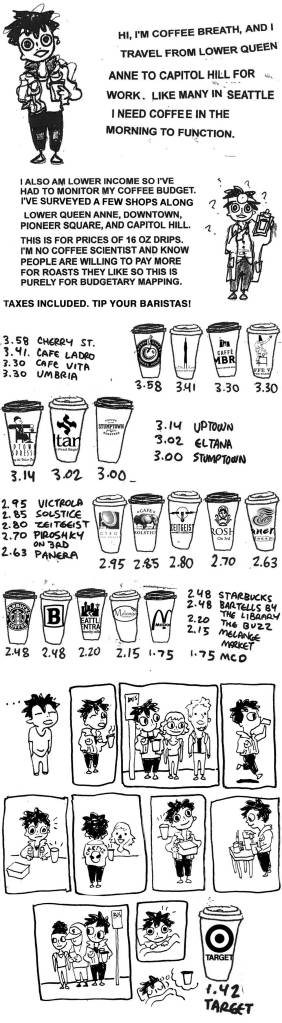 HI, I'M COFFEE BREATH, AND I
TRAVEL FROM LOWER QUEEN
ANNE TO CAPITOL HILL FOR
WORK. LIKE MANY IN SEATTLE
I NEED COFFEE IN THE
MORNING TO FUNCTION.
I ALSO AM LOWER INCOME SO I'VE
HAD TO MONITOR MY COFFEE BUDGET.
I'VE SURVEYED A FEW SHOPS ALONG
LOWER QUEEN ANNE, DOWNTOWN,
PIONEER SQUARE, AND CAPITOL HILL.
THIS IS FOR PRICES OF 16 OZ DRIPS.
I'M NO COFFEE SCIENTIST AND KNOW
PEOPLE ARE WILLING TO PAY MORE
FOR ROASTS THEY LIKE SO THIS IS
PURELY FOR BUDGETARY MAPPING.
? ? ? ?
TAXES INCLUDED. TIP YOUR BARISTAS!
3.58 CHERRY ST.
3.41 CAFE LADRO
3.30 CAFE VITA
3.30 UMBRIA
CAFFÈ
MBR
FFE V
3.58 3.41 3.30 3.30
PTOW
PRES
ltan
STUMPTOWN
3.14 3.02 3.00
3.14 UPTOWN
3.02 ELTANA
3.00 STUMPTOWN
2.95 VICTROLA
2.85 SOLSTICE
2.80 ZEITGEIST
2.70 PIROSHKY
ON 3RD
2.63 PANERA
CAFE
SOLSTIC
ZEITGEIST
ROSH
On 3rd
ner
2.95 2.85 2.80 2.70 2.63
B
EATTL
ENTRA
M
2.48 2.48 2.20 2.15 1.75
2.48 STARBUCKS
2.48 BARTELLS BY
THE LIBRARY
2.20 THE BUZZ
2.15 MELANGE
MARKET
1.75 MCD
...
BUS
BUS
TARGET
1.42
TARGET